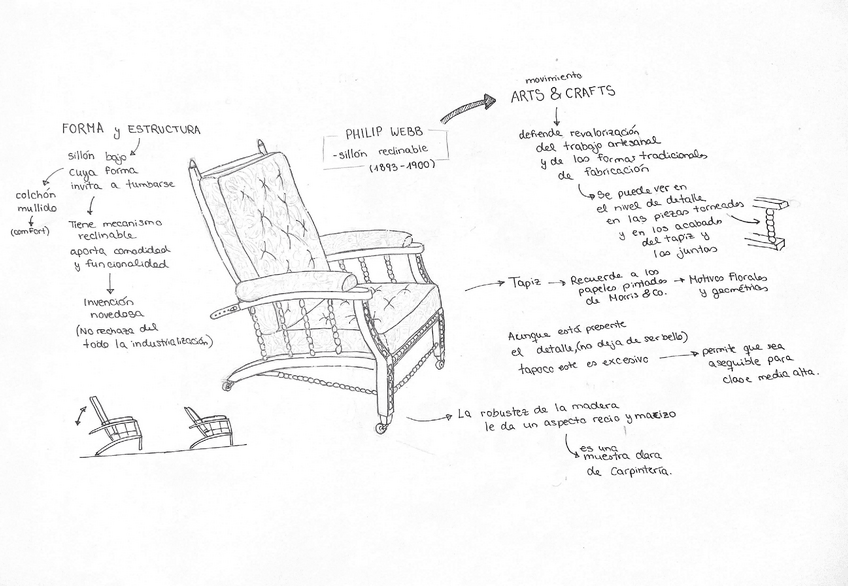 FORMA y ESTRUCTURA
sillón bajo
cuya forma
invita a tumbarse
colchón
mullido
(comfort)
Tiene mecanismo
reclinable
aporta comodidad
y funcionalidad
Invención
novedosa
(No rechaza del
todo la industrialización)
PHILIP WEBB
-sillón reclinable
(1893-1900)
movimiento
ARTS & CRAFTS
defiende revalorización
del trabajo artesanal
y de las formas tradicionales
de fabricación
Se puede ver en
el nivel de detalle
en las piezas torneadas
y en los acabados
del tapiz y
las juntas
Tapiz
Recuerda a los
papeles pintados
de Morris & Co.
Motivos florales
y geométricos
Aunque está presente
el detalle, (no deja de ser bello)
tapoco este es excesivo
permite que sea
asequible para
clase media alta.
La robustez de la madera
le da un aspecto recio y macizo
es una
muestra clara
de carpintería.